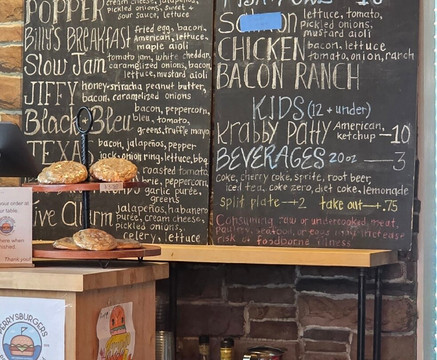 POPPER cream cheese, jalapeños,
pickled onions, sweet &
sour sauce, lettuce
Billy's BREAKFAST fried egg, bacon,
American, lettuce,
maple aioli
Slow Jam tomato jam, white cheddar,
caramelized onions, bacon
lettuce, mustard aioli
JIFFY honey-sriracha peanut butter,
bacon, caramelized onions
Black & Bleu bacon, pepperoncini,
bleu, tomato,
greens, truffle mayo
TEXA bacon, jalapeños, pepper
jack, onion ring, lettuce, bbq
roasted tomato
brie, pepperoncini,
garlic puree,
greens
ive Alarm jalapeños, habanero
puree, cream cheese,
pickled onions,
celery, lettuce
lettuce, tomato,
pickled onions,
mustard aioli
CHICKEN bacon, lettuce
BACON RANCH tomato, onion, ranch
KIDS (12 + under)
Krabby Patty American, ketchup —10
BEVERAGES 20oz —3
coke, cherry coke, sprite, root beer,
iced tea, coke zero, diet coke, lemonade
split plate —2 take out —.75
Consuming raw or undercooked, meat,
poultry, seafood, or eggs may increase
risk of foodborne illness
your order at
your table.
here when
Thank you
ERRYSBURGERS